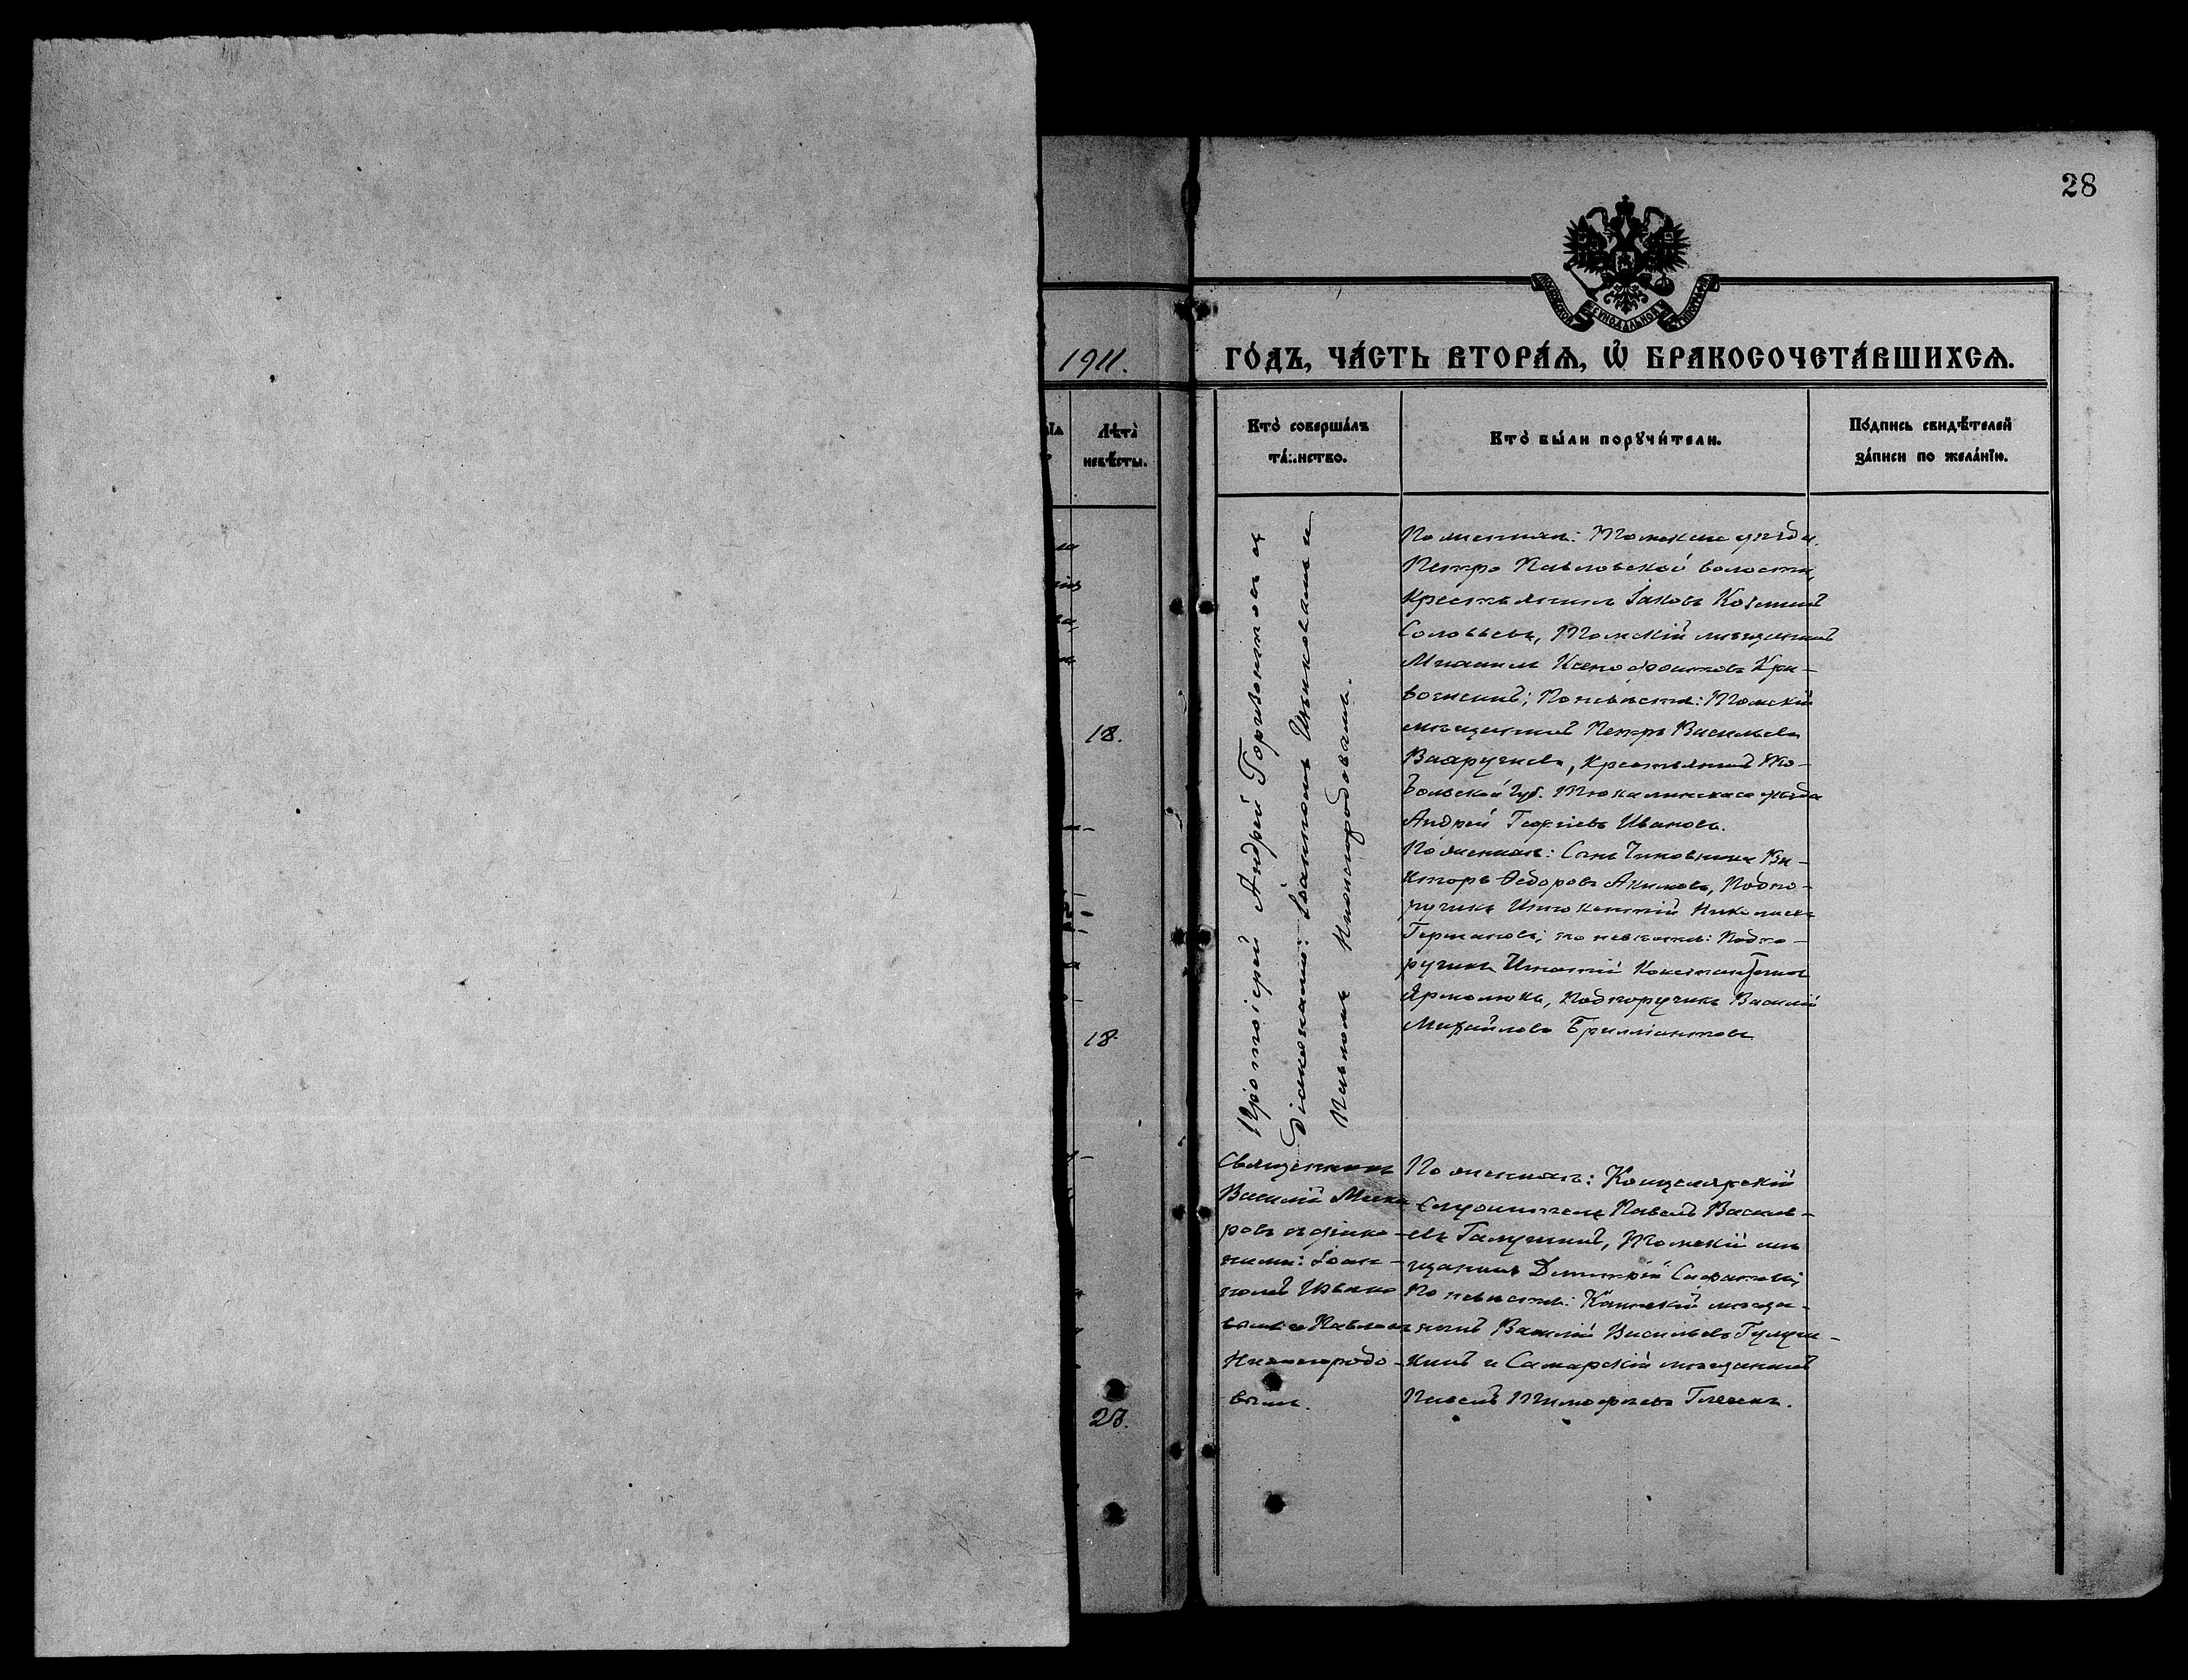 28
1911.
ГО́ДЪ, ЧА́СТЬ ВТОРА́Ѧ, Ѽ БРАКОСОЧЕТА́ВШИХСѦ.
Лѣта̀
невѣ́сты.
Кто̀ соверша́лъ
та́инство.
Кто̀ бы́ли порꙋчи́тели.
По́дпись свидѣ́телей
за́писи по жела́нїю.
18.
18.
23.
Протоіерей Андрей съ
діаконами: Іоанномъ Ивановымъ и
Павломъ Нижегородовымъ.
По женихѣ: Томскаго уѣзда,
Петро Павловской волости,
крестьянинъ Іаковъ Козминъ
Соловьевъ, Томскій мѣщанинъ
Михаилъ Ксенофонтовъ Кри-
; по невѣстѣ: Томскій
мѣщанинъ Петръ Васильевъ
крестьянинъ То-
больской губ. Тюкалинскаго уѣзда
Андрей Георгіевъ Ивановъ.
По женихѣ: Сынъ Чиновника Ви-
кторъ Ѳедоровъ Акимовъ, Подпо-
ручикъ Иннокентій Николаевъ
Германовъ; по невѣстѣ: Подпо-
ручикъ Игнатій Константиновъ
Ярмолюкъ, Подпоручикъ Василій
Михайловъ Брилліантовъ
Священникъ
Василій
ровъ съ діако-
нами: Іоан-
номъ
вымъ и Павломъ
Нижегородо-
вымъ.
По женихѣ: Канцелярскій
Служитель Павелъ Василь-
евъ Галушинъ, Томскій мѣ-
щанинъ Димитрій
По невѣстѣ: Каинскій мѣща-
нинъ Василій Васильевъ
кинъ и Самарскій мѣщанинъ
Павелъ Тимофѣевъ